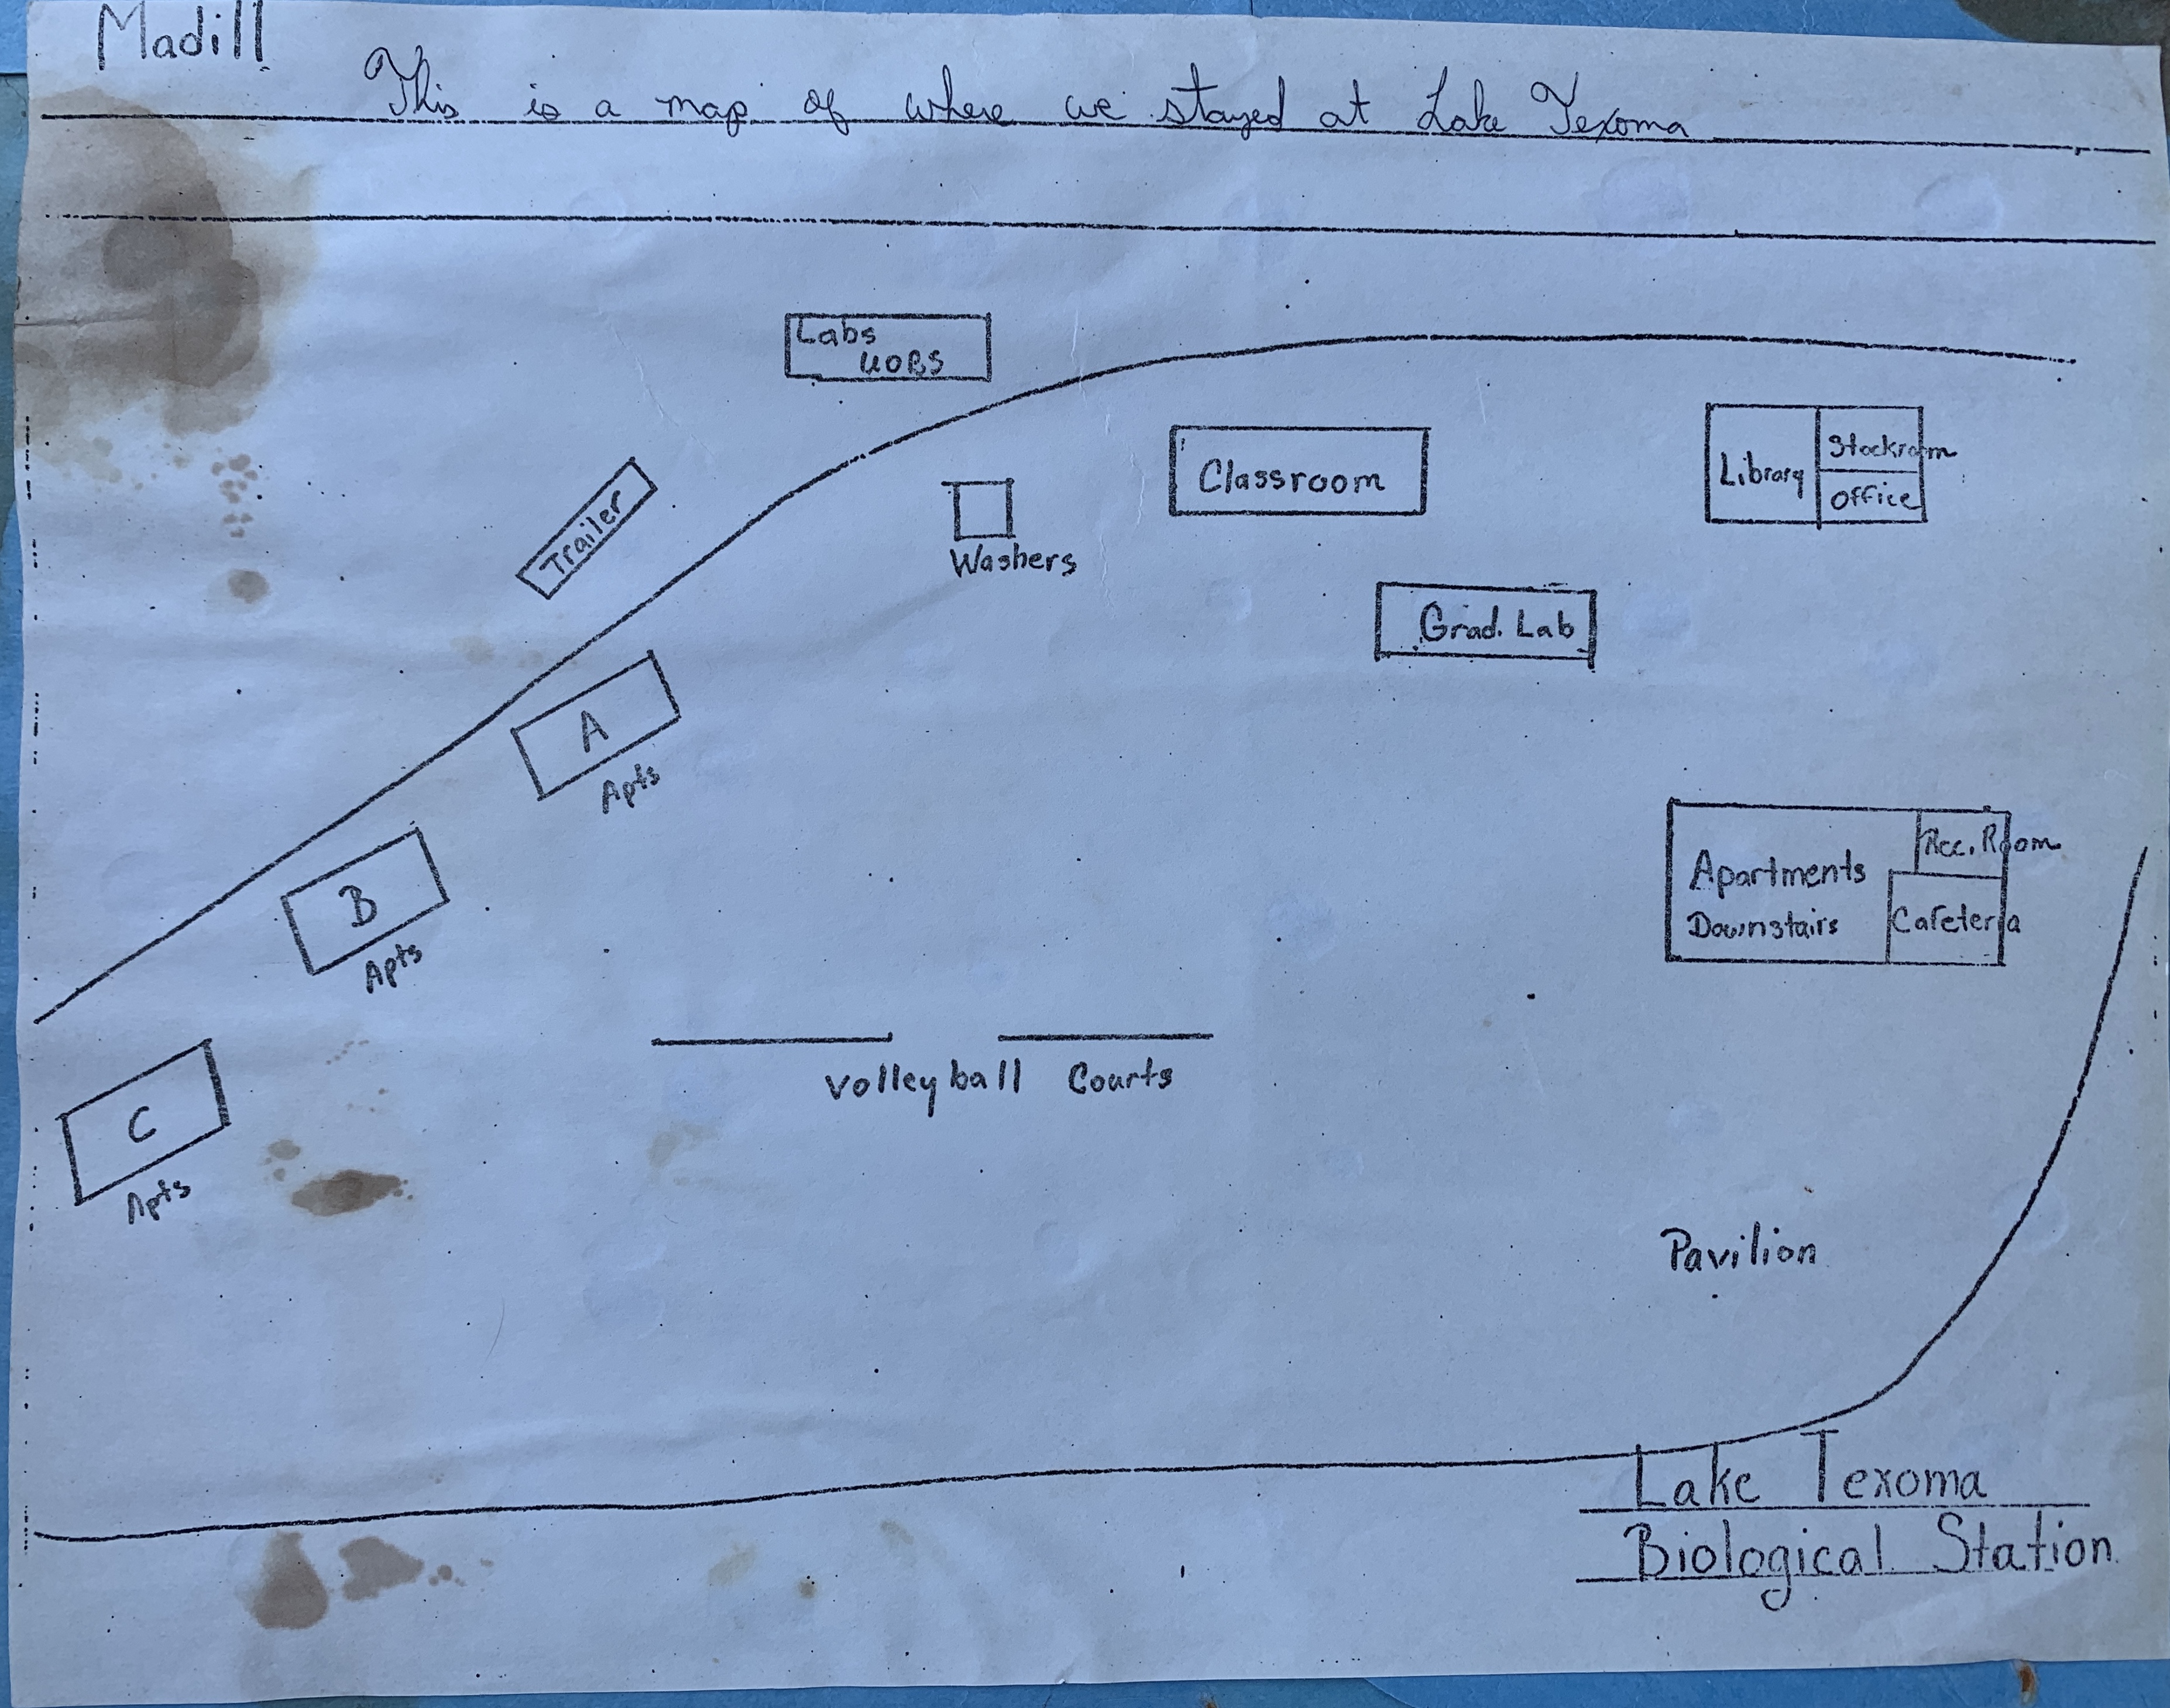 Madill
This is a map of where we stayed at Lake Texoma
Labs
UOBS
Trailer
Washers
Classroom
Library
Stockroom
Office
Grad. Lab
A
Apts
B
Apts
C
Apts
Apartments
Downstairs
Rec. Room
Cafeteria
Volleyball Courts
Pavilion
Lake Texoma
Biological Station